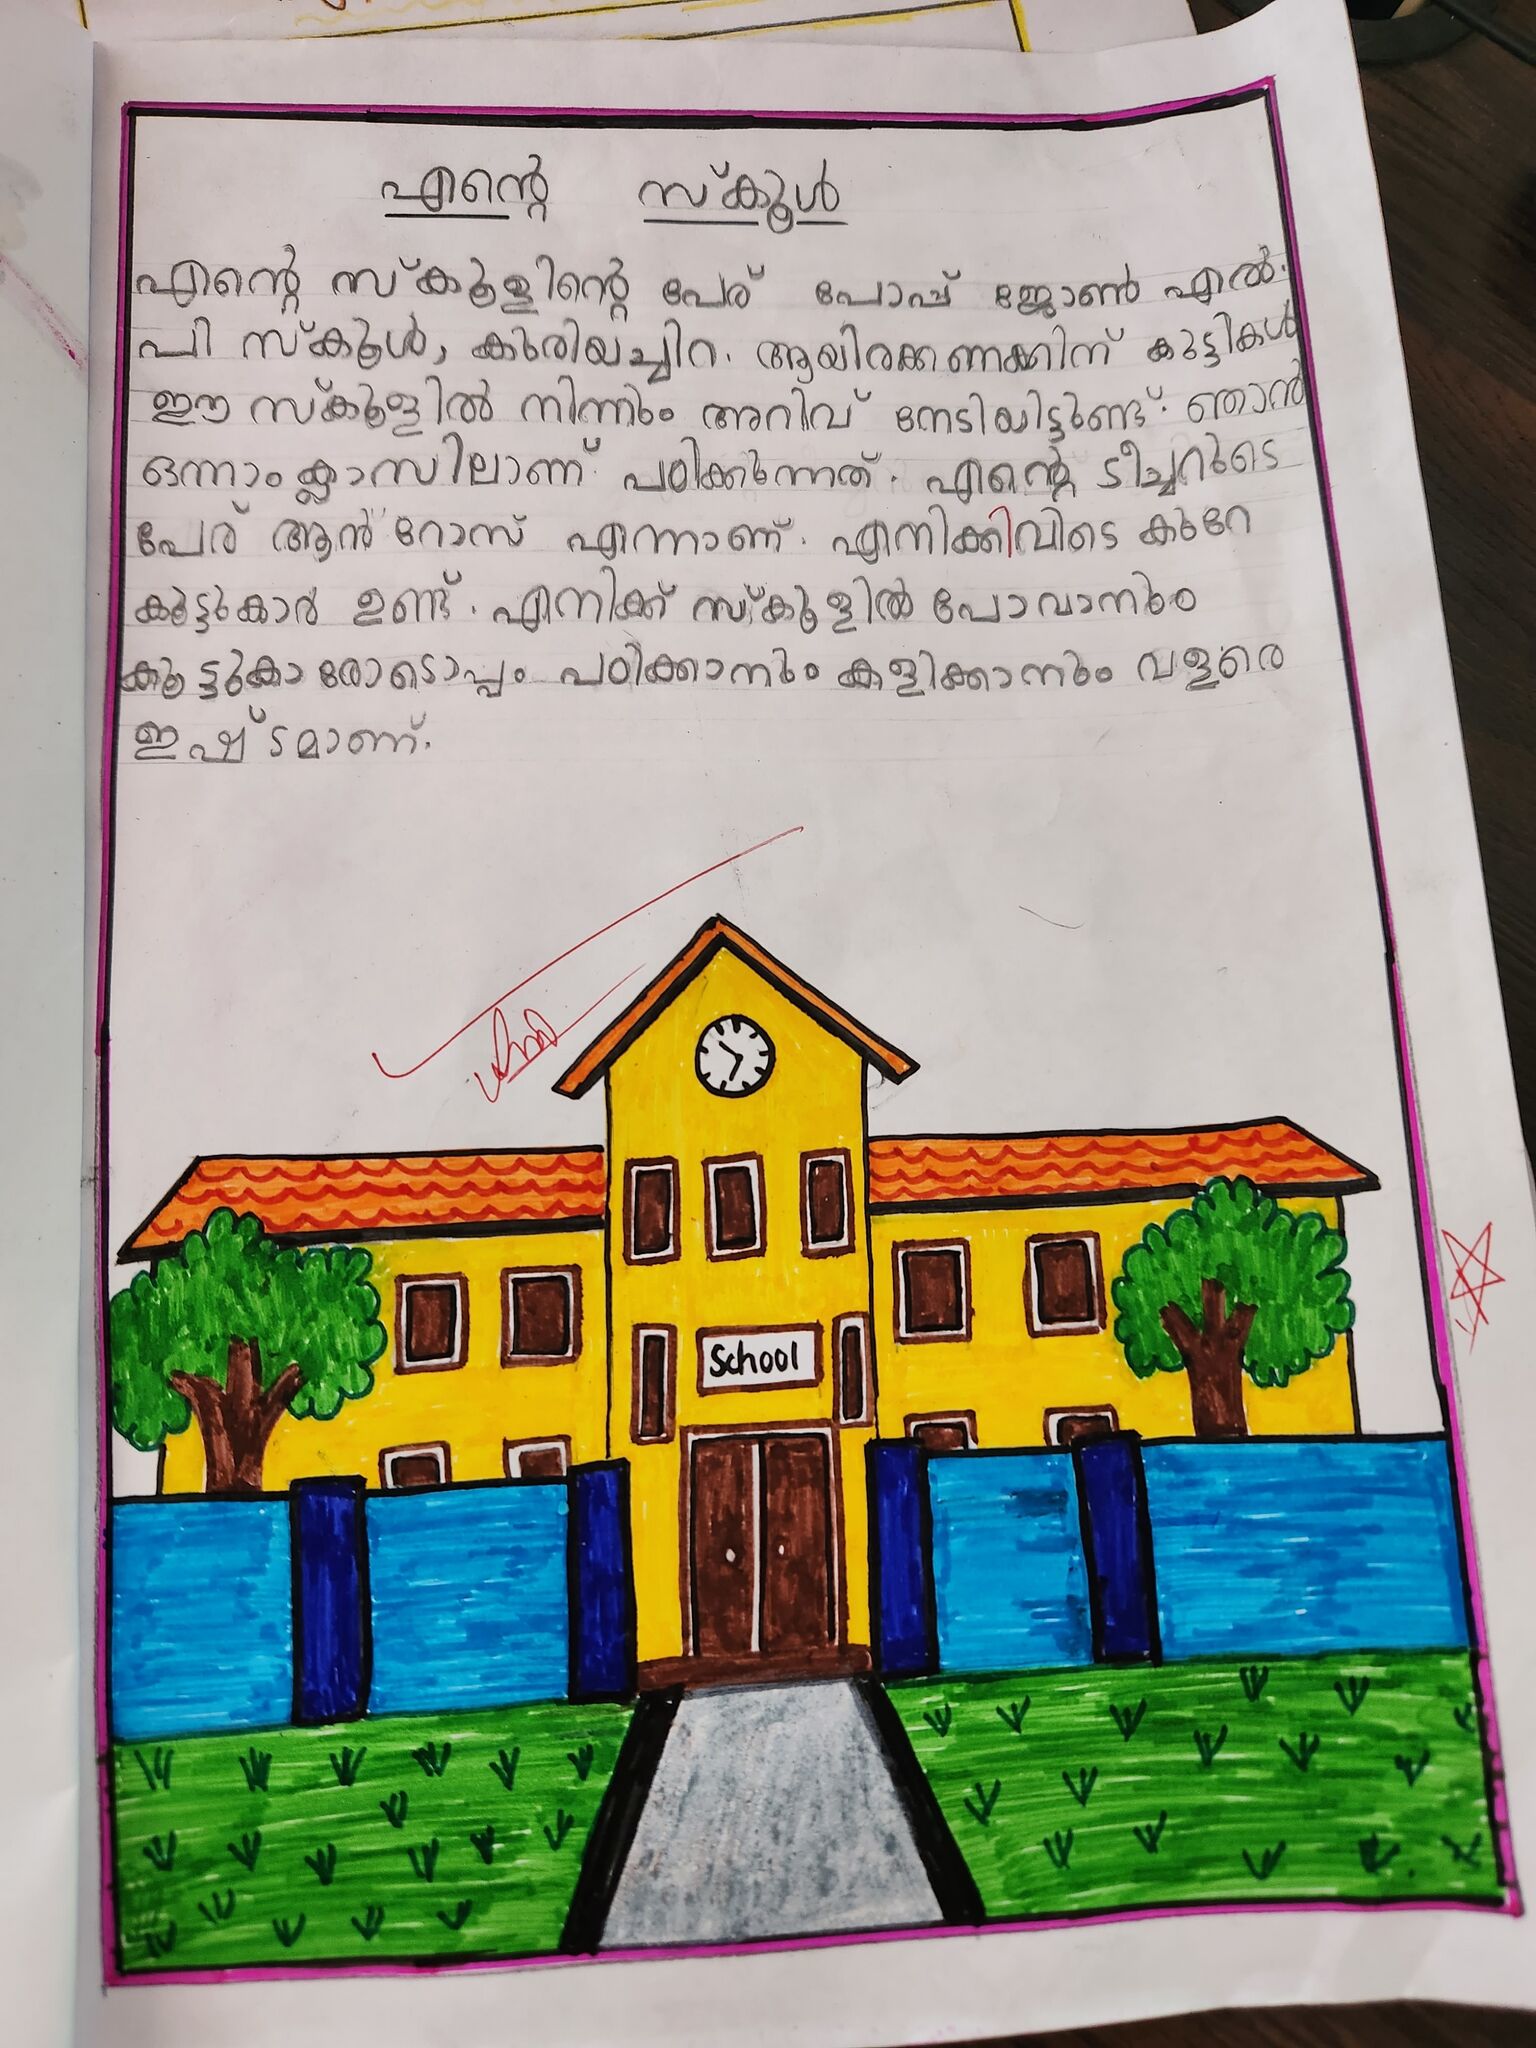 എന്റെ സ്കൂൾ
എന്റെ സ്കൂളിന്റെ പേര് പോപ്പ് ജോൺ എൽ.
പി സ്കൂൾ, കുരിയച്ചിറ. ആയിരക്കണക്കിന് കുട്ടികൾ
ഈ സ്കൂളിൽ നിന്നും അറിവ് നേടിയിട്ടുണ്ട്. ഞാൻ
ഒന്നാം ക്ലാസിലാണ് പഠിക്കുന്നത്. എന്റെ ടീച്ചറുടെ
പേര് ആൻ റോസ് എന്നാണ്. എനിക്കിവിടെ കുറേ
കൂട്ടുകാർ ഉണ്ട്. എനിക്ക് സ്കൂളിൽ പോവാനും
കൂട്ടുകാരോടൊപ്പം പഠിക്കാനും കളിക്കാനും വളരെ
ഇഷ്ടമാണ്.
School